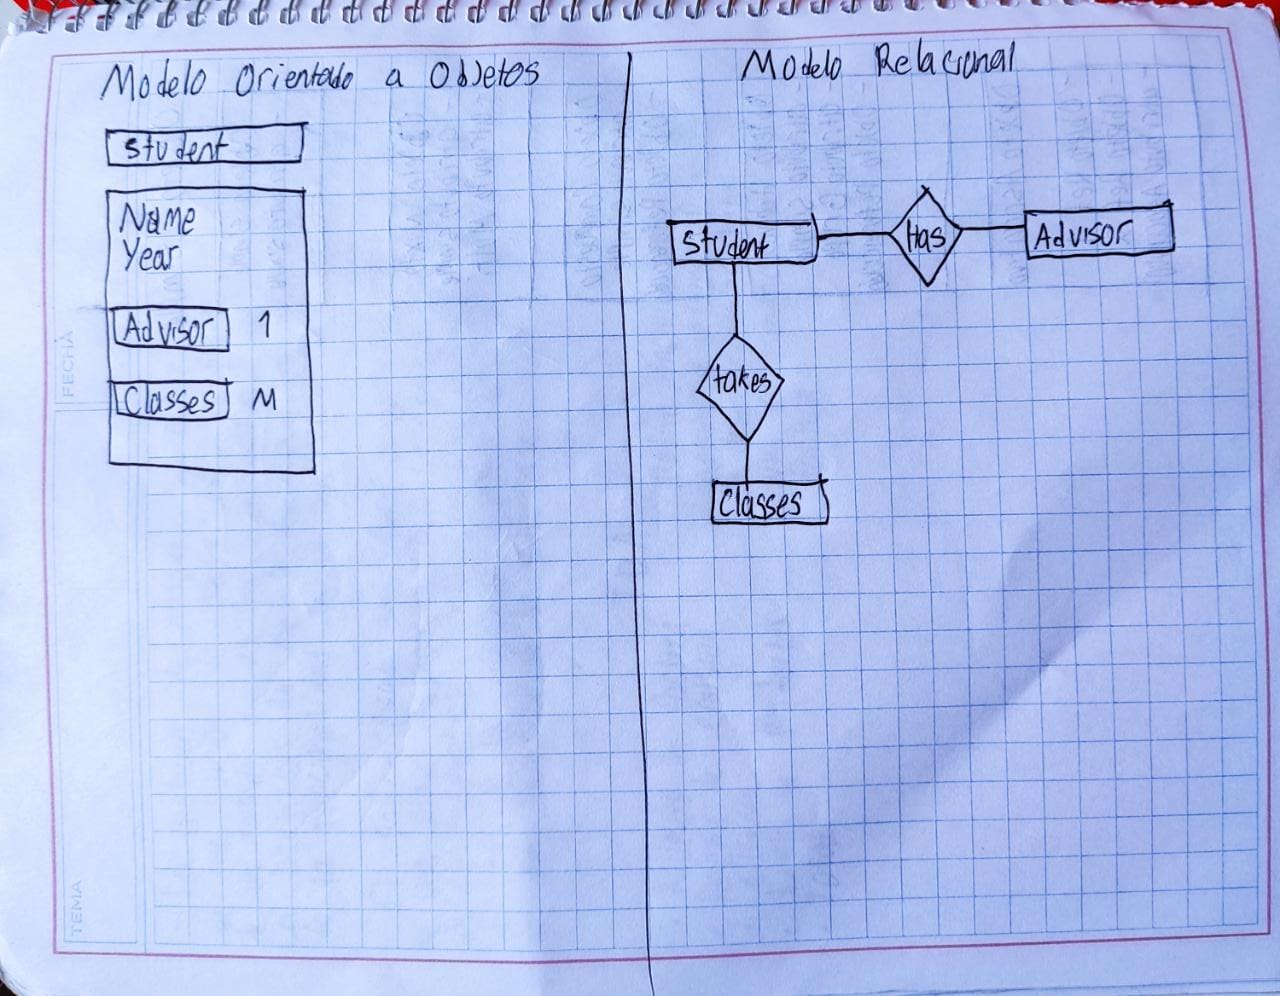 Modelo Orientado a Objetos
Student
Name
Year
Advisor 1
Classes M
Modelo Relacional
Student Has Advisor
takes
Classes
FECHA
TEMA